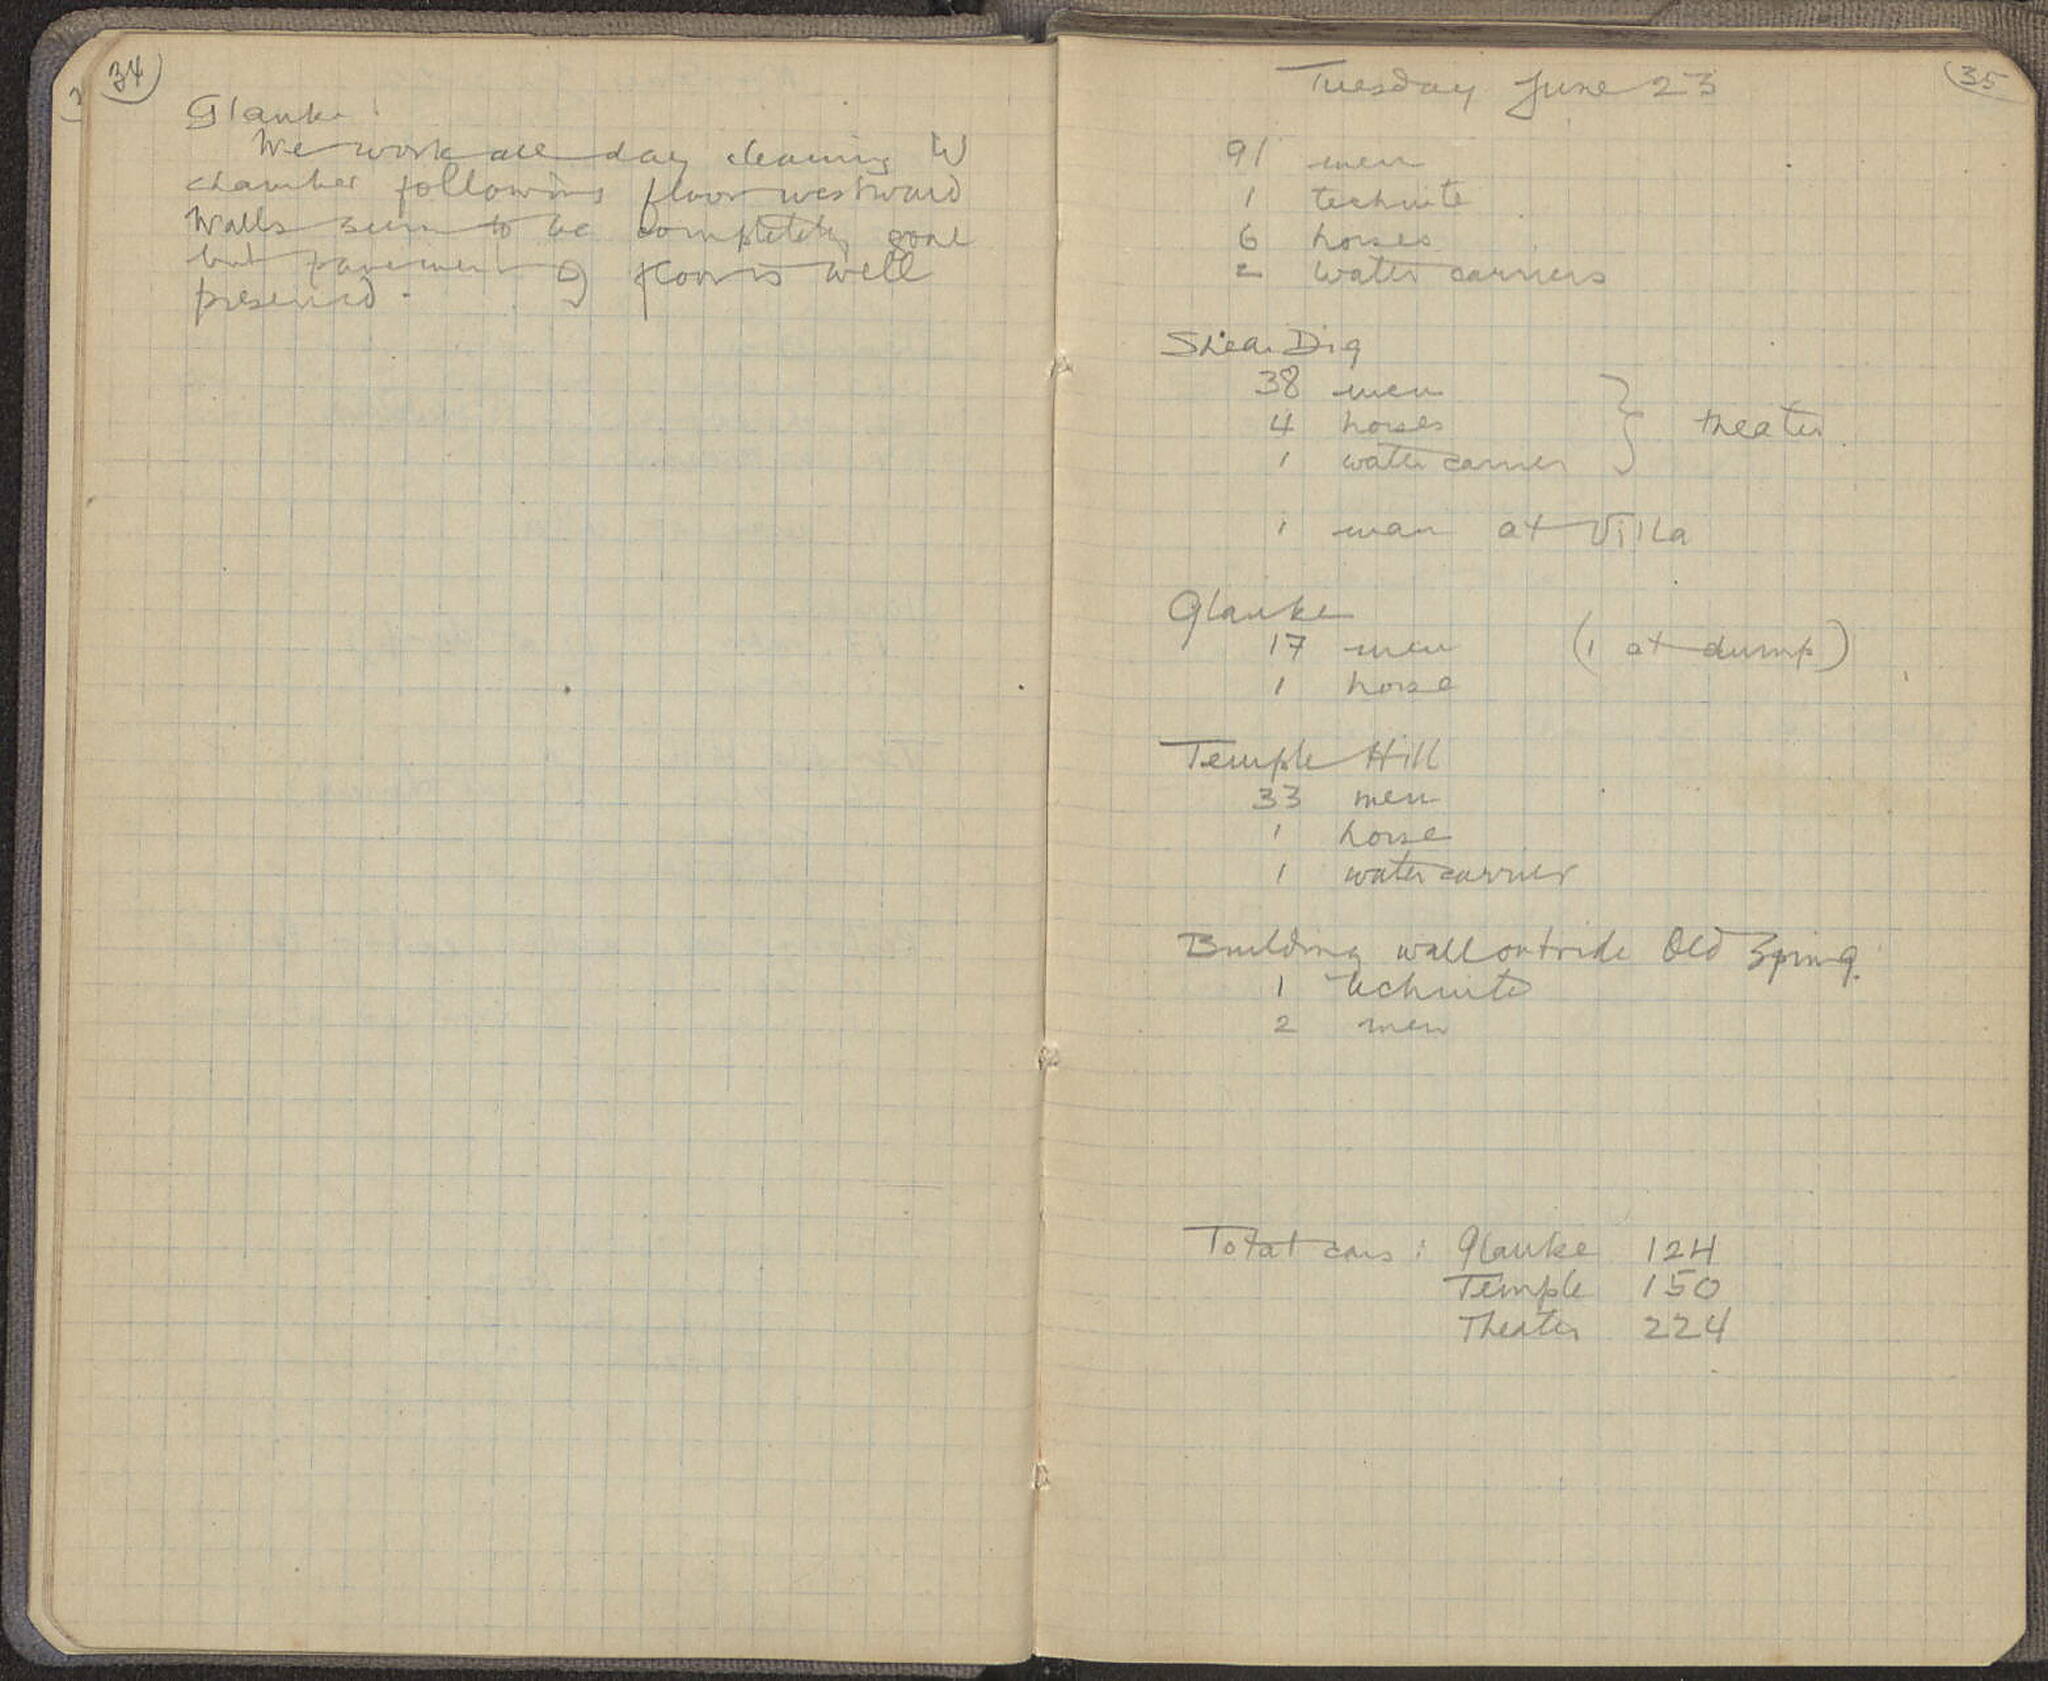 34
Glauke:
We work all day cleaning W
chamber following floor westward
Walls seem to be completely gone
but pavement of floor is well
preserved.
35
Tuesday June 23
91 men
1 technite
6 horses
2 water carriers
Shear Dig
38 men
4 horses } theater
1 water carrier
1 man at Villa
Glauke
17 men (1 at dump)
1 horse
Temple Hill
33 men
1 horse
1 water carrier
Building wall outside Old Spring.
1 technite
2 men
Total cars: Glauke 124
Temple 150
Theater 224